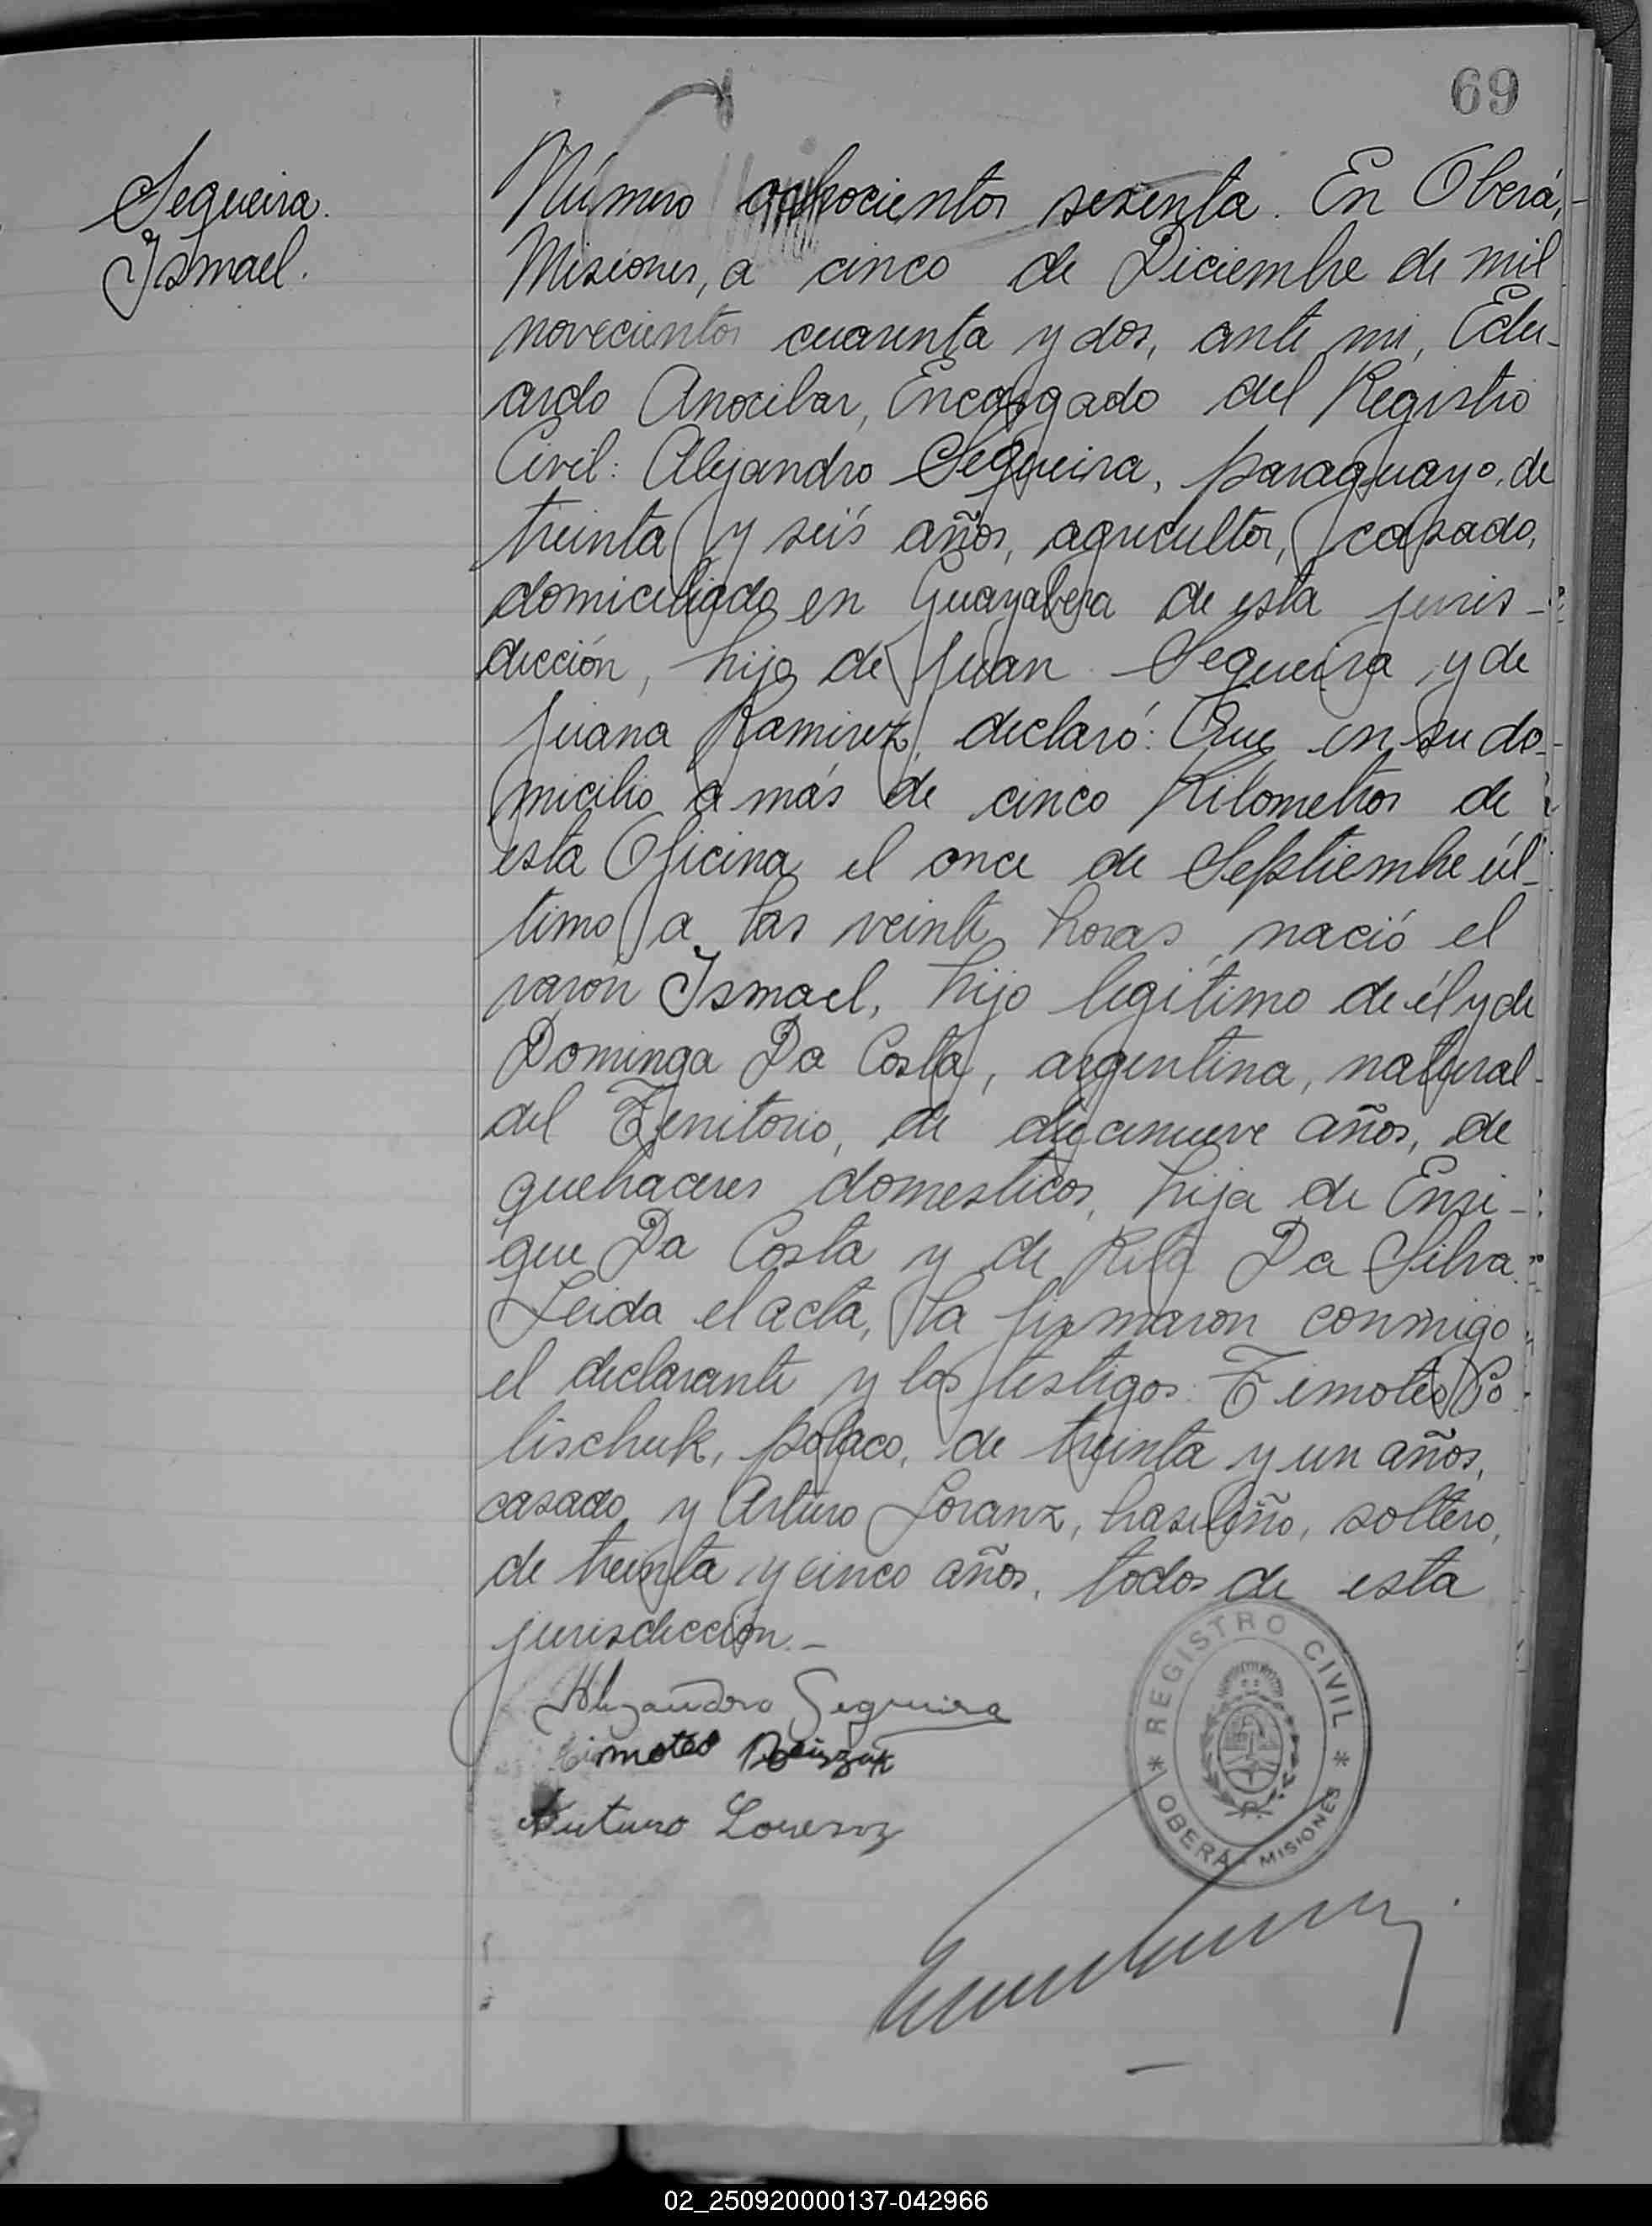 69
Sequeira.
Ismael.
Número ochocientos sesenta. En Oberá,
Misiones, a cinco de Diciembre de mil
novecientos cuarenta y dos, ante mi, Edu-
ardo Anocibar, Encargado del Registro
Civil: Alejandro Sequeira, paraguayo, de
treinta y seis años, agricultor, casado,
domiciliado en Guayabera de esta juris-
dicción, hijo de Juan Sequeira y de
Juana Ramirez, declaró: Que en su do-
micilio a más de cinco Kilometros de
esta Oficina el once de Septiembre úl-
timo a las veinte horas, nació el
varón Ismael, hijo legítimo de él y de
Dominga Da Costa, argentina, natural
del Territorio, de diecinueve años, de
quehaceres domesticos, hija de Enri-
que Da Costa y de Rita Da Silva.
Leida el acta, la firmaron conmigo
el declarante y los testigos: Timoteo Po
lischuk, polaco, de treinta y un años,
casado y Arturo Loranz, brasileño, soltero,
de treinta y cinco años, todos de esta
jurisdicción.-
Alejandro Sequeira
Timoteo
Arturo Lorenz
REGISTRO CIVIL
* OBERÁ - MISIONES *
02_250920000137-042966